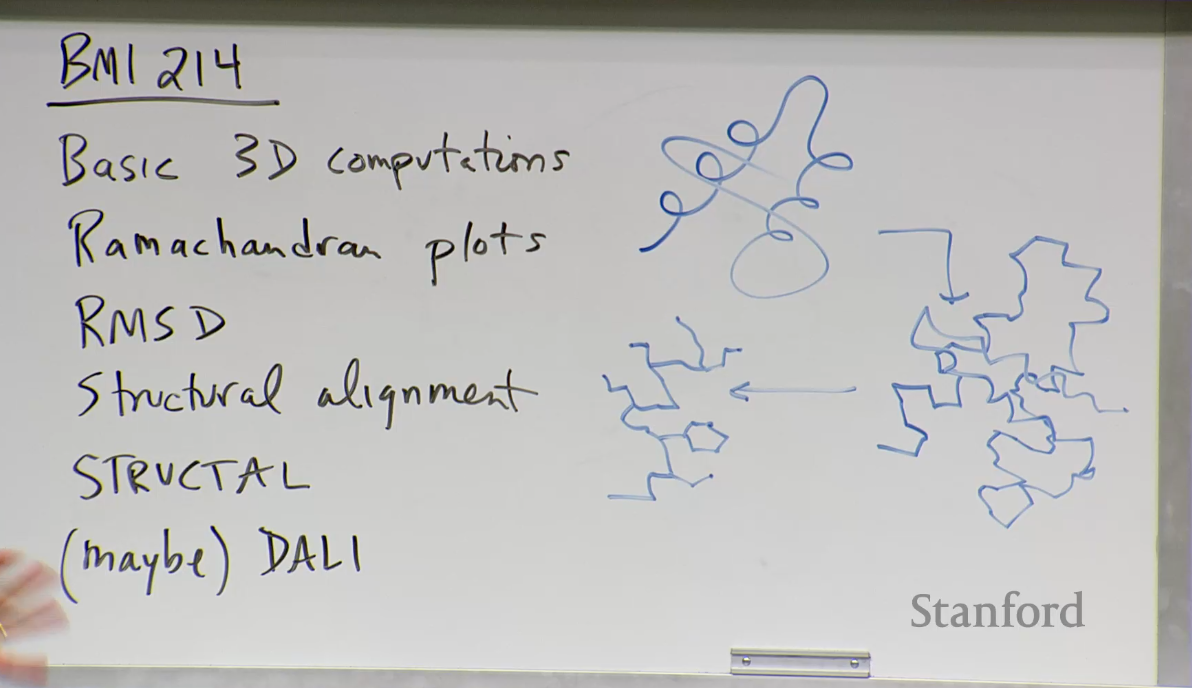 BMI 214
Basic 3D computations
Ramachandran plots
RMSD
Structural alignment
STRUCTAL
(maybe) DALI
Stanford